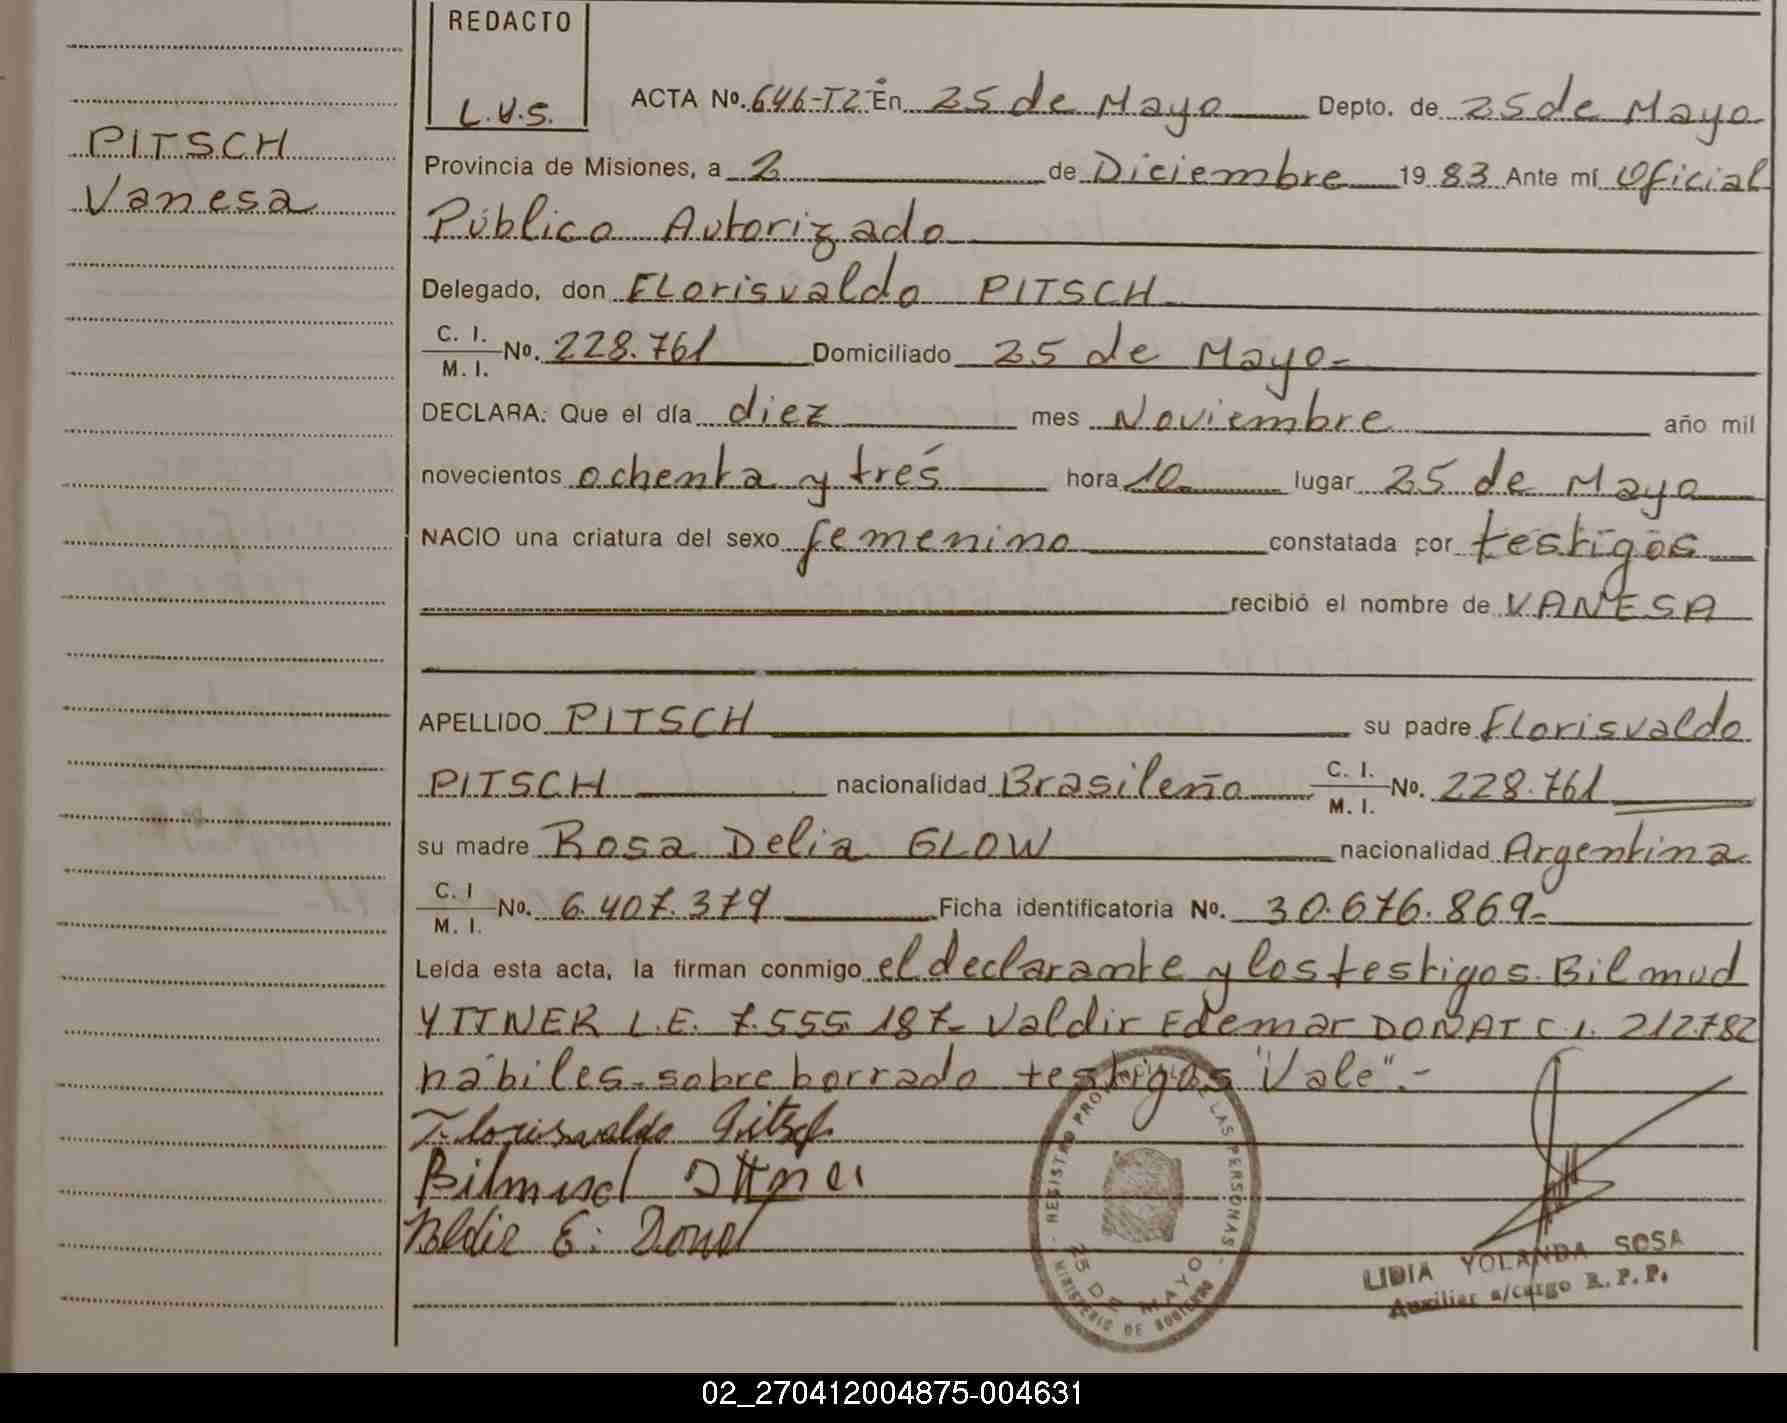 REDACTO
L.V.S.
PITSCH
Vanesa
ACTA No. 646-T2- En 25 de Mayo Depto. de 25 de Mayo
Provincia de Misiones, a 2 de Diciembre 19 83 Ante mí Oficial
Público Autorizado
Delegado, don FLorisvaldo PITSCH
C. I.
M. I. No. 228.761 Domiciliado 25 de Mayo-
DECLARA: Que el día diez mes Noviembre año mil
novecientos ochenta y tres hora 10 lugar 25 de Mayo
NACIO una criatura del sexo femenino constatada por testigos
recibió el nombre de VANESA
APELLIDO PITSCH su padre Florisvaldo
PITSCH nacionalidad Brasileño C. I.
M. I. No. 228.761
su madre Rosa Delia GLOW nacionalidad Argentina
C. I
M. I. No. 6.407.379 Ficha identificatoria No. 30.676.869-
Leída esta acta, la firman conmigo el declarante y los testigos Bilmud
YTTNER L.E. 7.555.187- Valdir Edemar DONAT C.I. 212.782
hábiles-sobre borrado testigos "Vale".-
Florisvaldo Pitsch
Bilmud Ittner
Valdir E. Donat
REGISTRO PROVINCIAL DE LAS PERSONAS
25 DE MAYO
MINISTERIO DE GOBIERNO
LIDIA YOLANDA SOSA
Auxiliar a/cargo R.P.P.
02_270412004875-004631